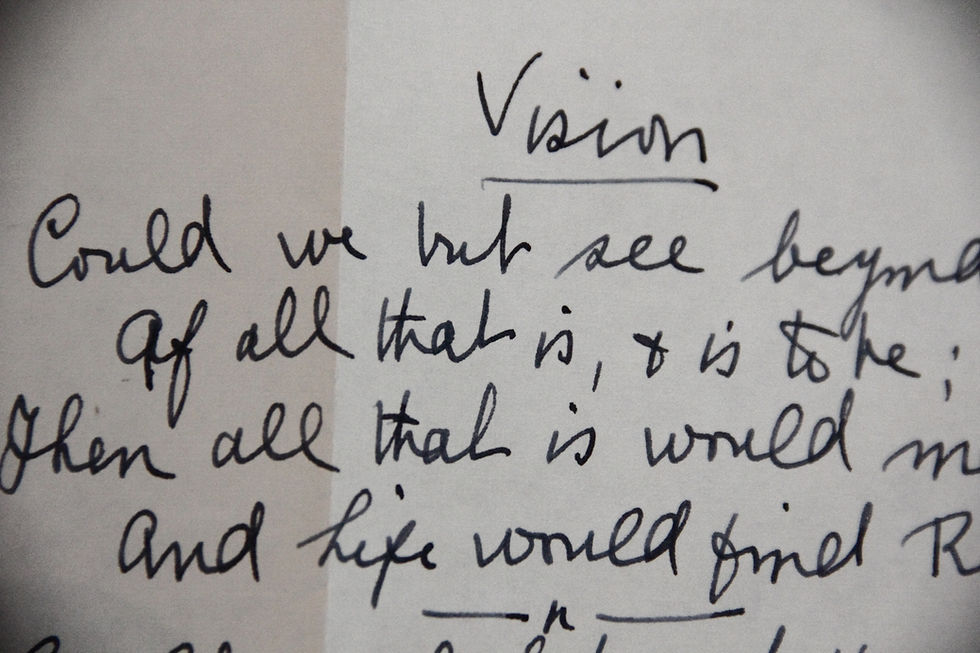 Vision
Could we but see beyond
Of all that is, & is to be;
Then all that is would
And Life would find